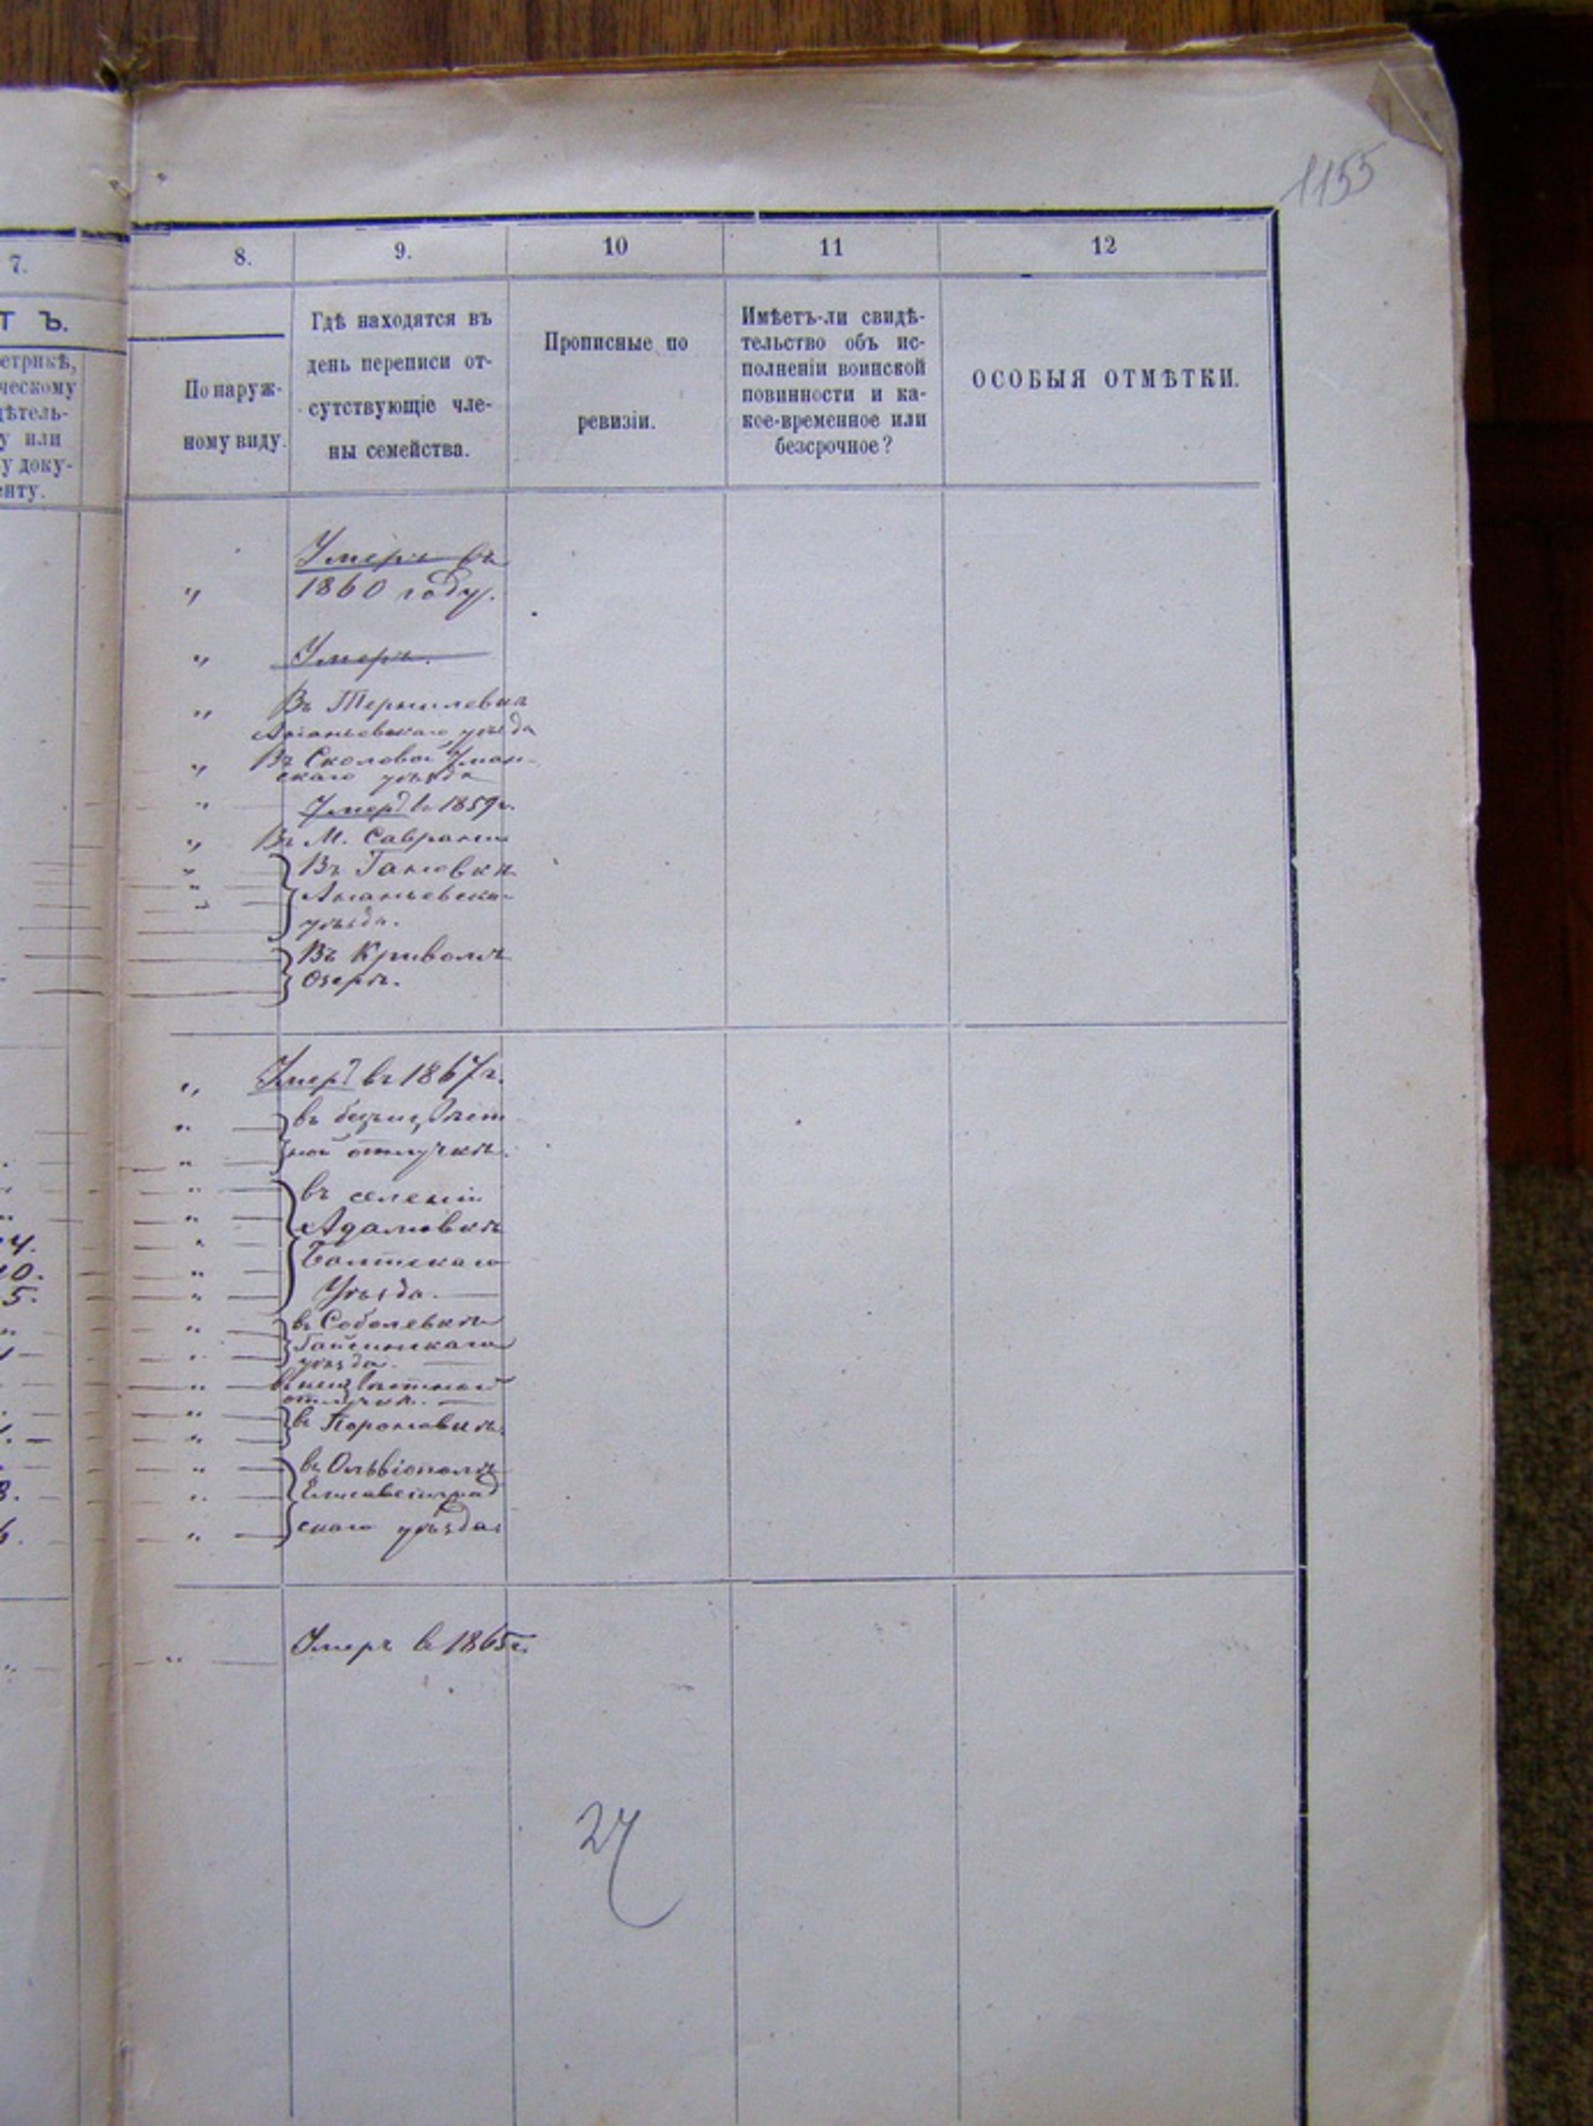 1155
7. 8. 9. 10 11 12
Т Ъ.
етрикѣ,
ческому
дѣтель-
у или
у доку-
енту.
По наруж-
ному виду.
Гдѣ находятся въ
день переписи от-
сутствующіе чле-
ны семейства.
Прописные по
ревизіи.
Имѣетъ-ли свидѣ-
тельство объ ис-
полненіи воинской
повинности и ка-
кое-временное или
безсрочное?
ОСОБЫЯ ОТМѢТКИ.
Умеръ въ
1860 году.
Умеръ.
Въ
Ананьевскаго уѣзда
Въ Уман-
скаго уѣзда
Умеръ въ 1859 г.
Въ М. Саврани
Въ
Ананьевска-
уѣзда.
Въ Кривомъ
Озерѣ.
Умеръ въ 1867 г.
въ безъизвѣст
ной отлучкѣ.
въ селеніи
Адамовкѣ
Балтскаго
Уѣзда.
4.
10.
5.
въ Соболевкѣ
Гайсинскаго
уѣзда.
отлучкѣ.
въ
въ Ольвіополѣ
Елисаветград
скаго уѣзда
8.
6.
Умеръ въ 1865 г.
24